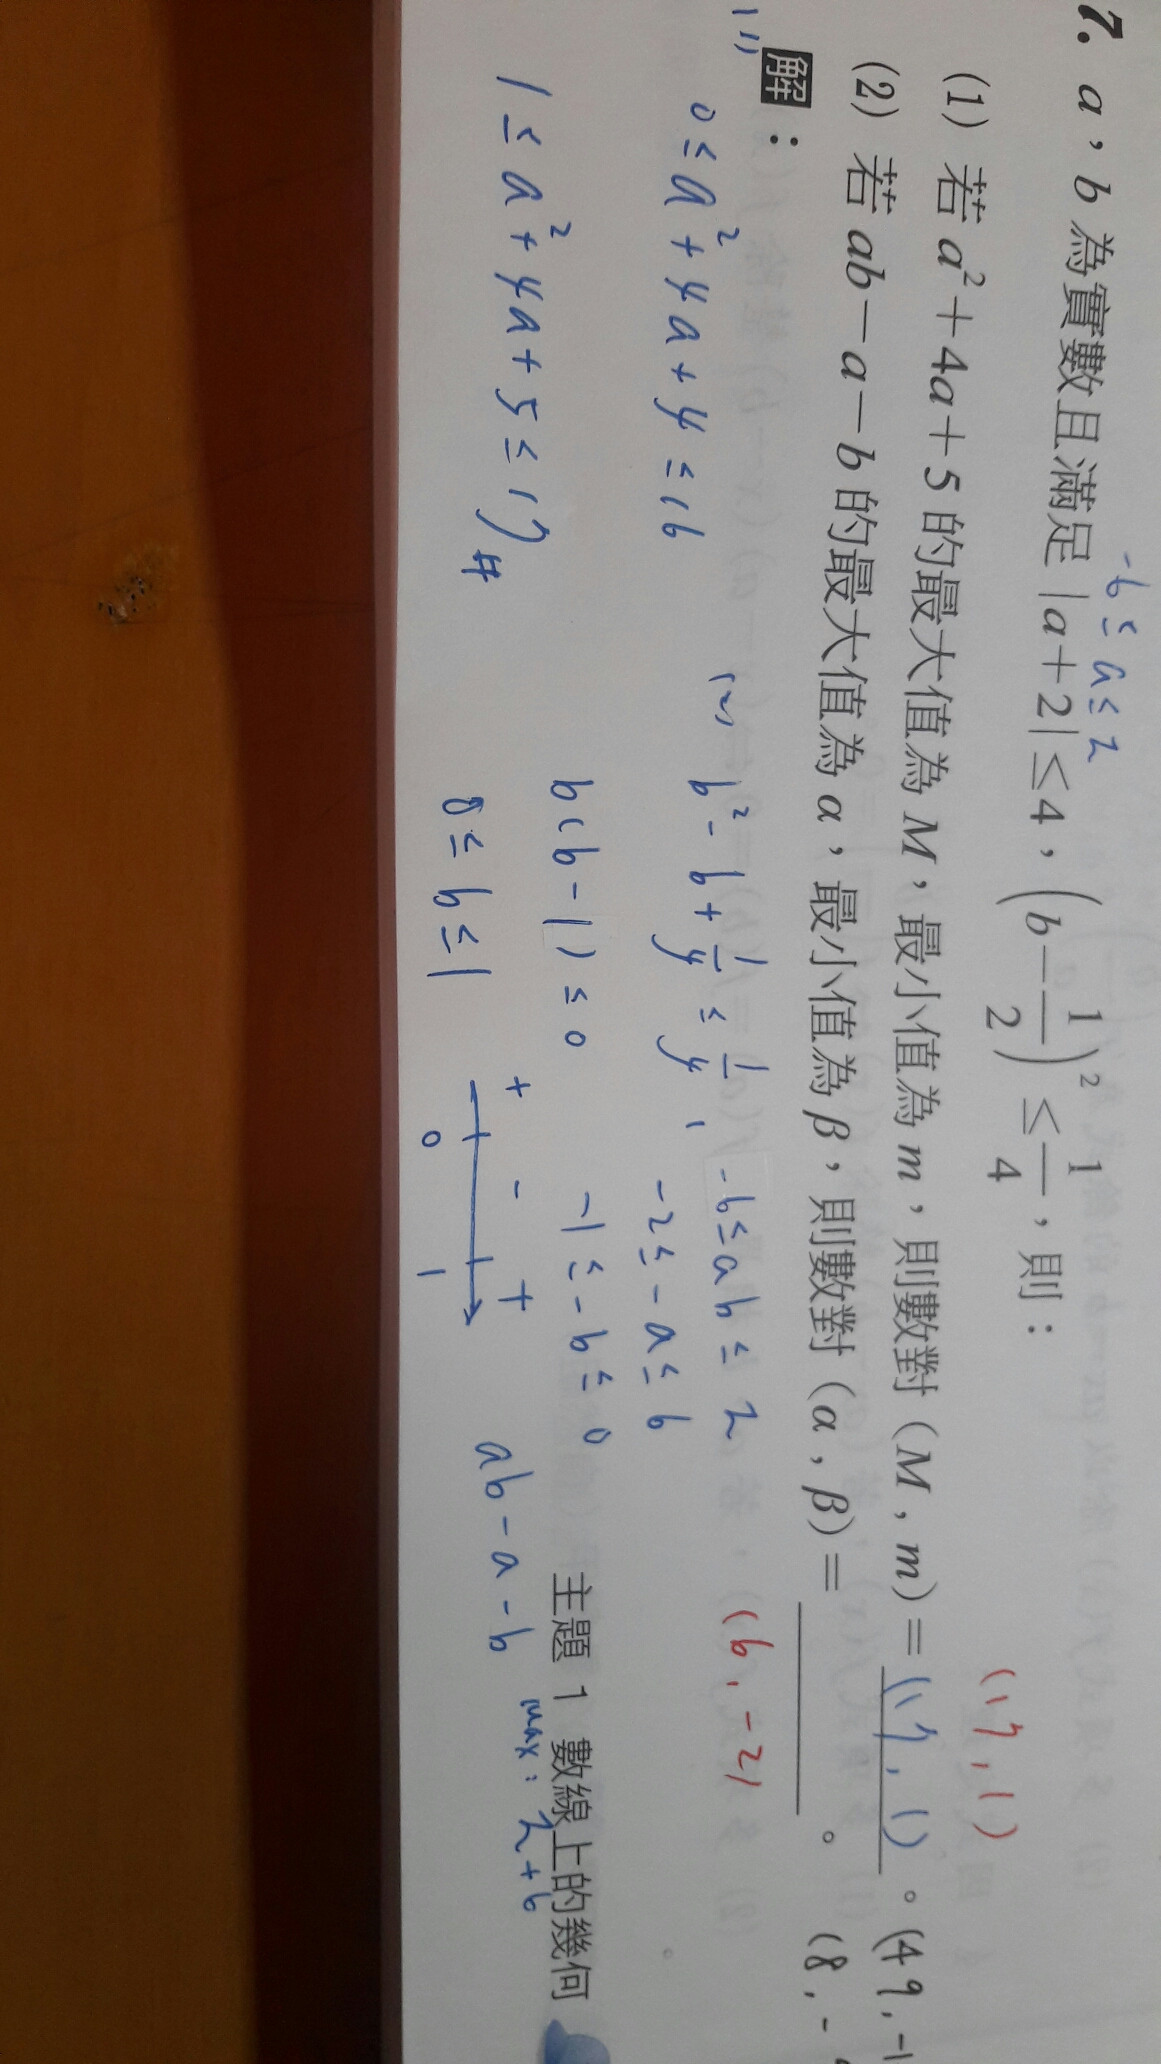 7. a，b 為實數且滿足 |a+2|≤4，(b−1/2)²≤1/4，則：
-6 ≤ a ≤ 2
(1) 若 a²+4a+5 的最大值為 M，最小值為 m，則數對 (M，m)= (17, 1) 。
(17, 1)
(49, -1
(2) 若 ab−a−b 的最大值為 α，最小值為 β，則數對 (α，β)= 。
(8, -
(6, -2)
解：
(1)
0 ≤ a² + 4a + 4 ≤ 16
1 ≤ a² + 4a + 5 ≤ 17 #
(2) b² - b + 1/4 ≤ 1/4,
b(b-1) ≤ 0
0 ≤ b ≤ 1
+ - +
0 1
-6 ≤ ab ≤ 2
-2 ≤ -a ≤ 6
-1 ≤ -b ≤ 0
ab - a - b
max: 2+6
主題 1 數線上的幾何